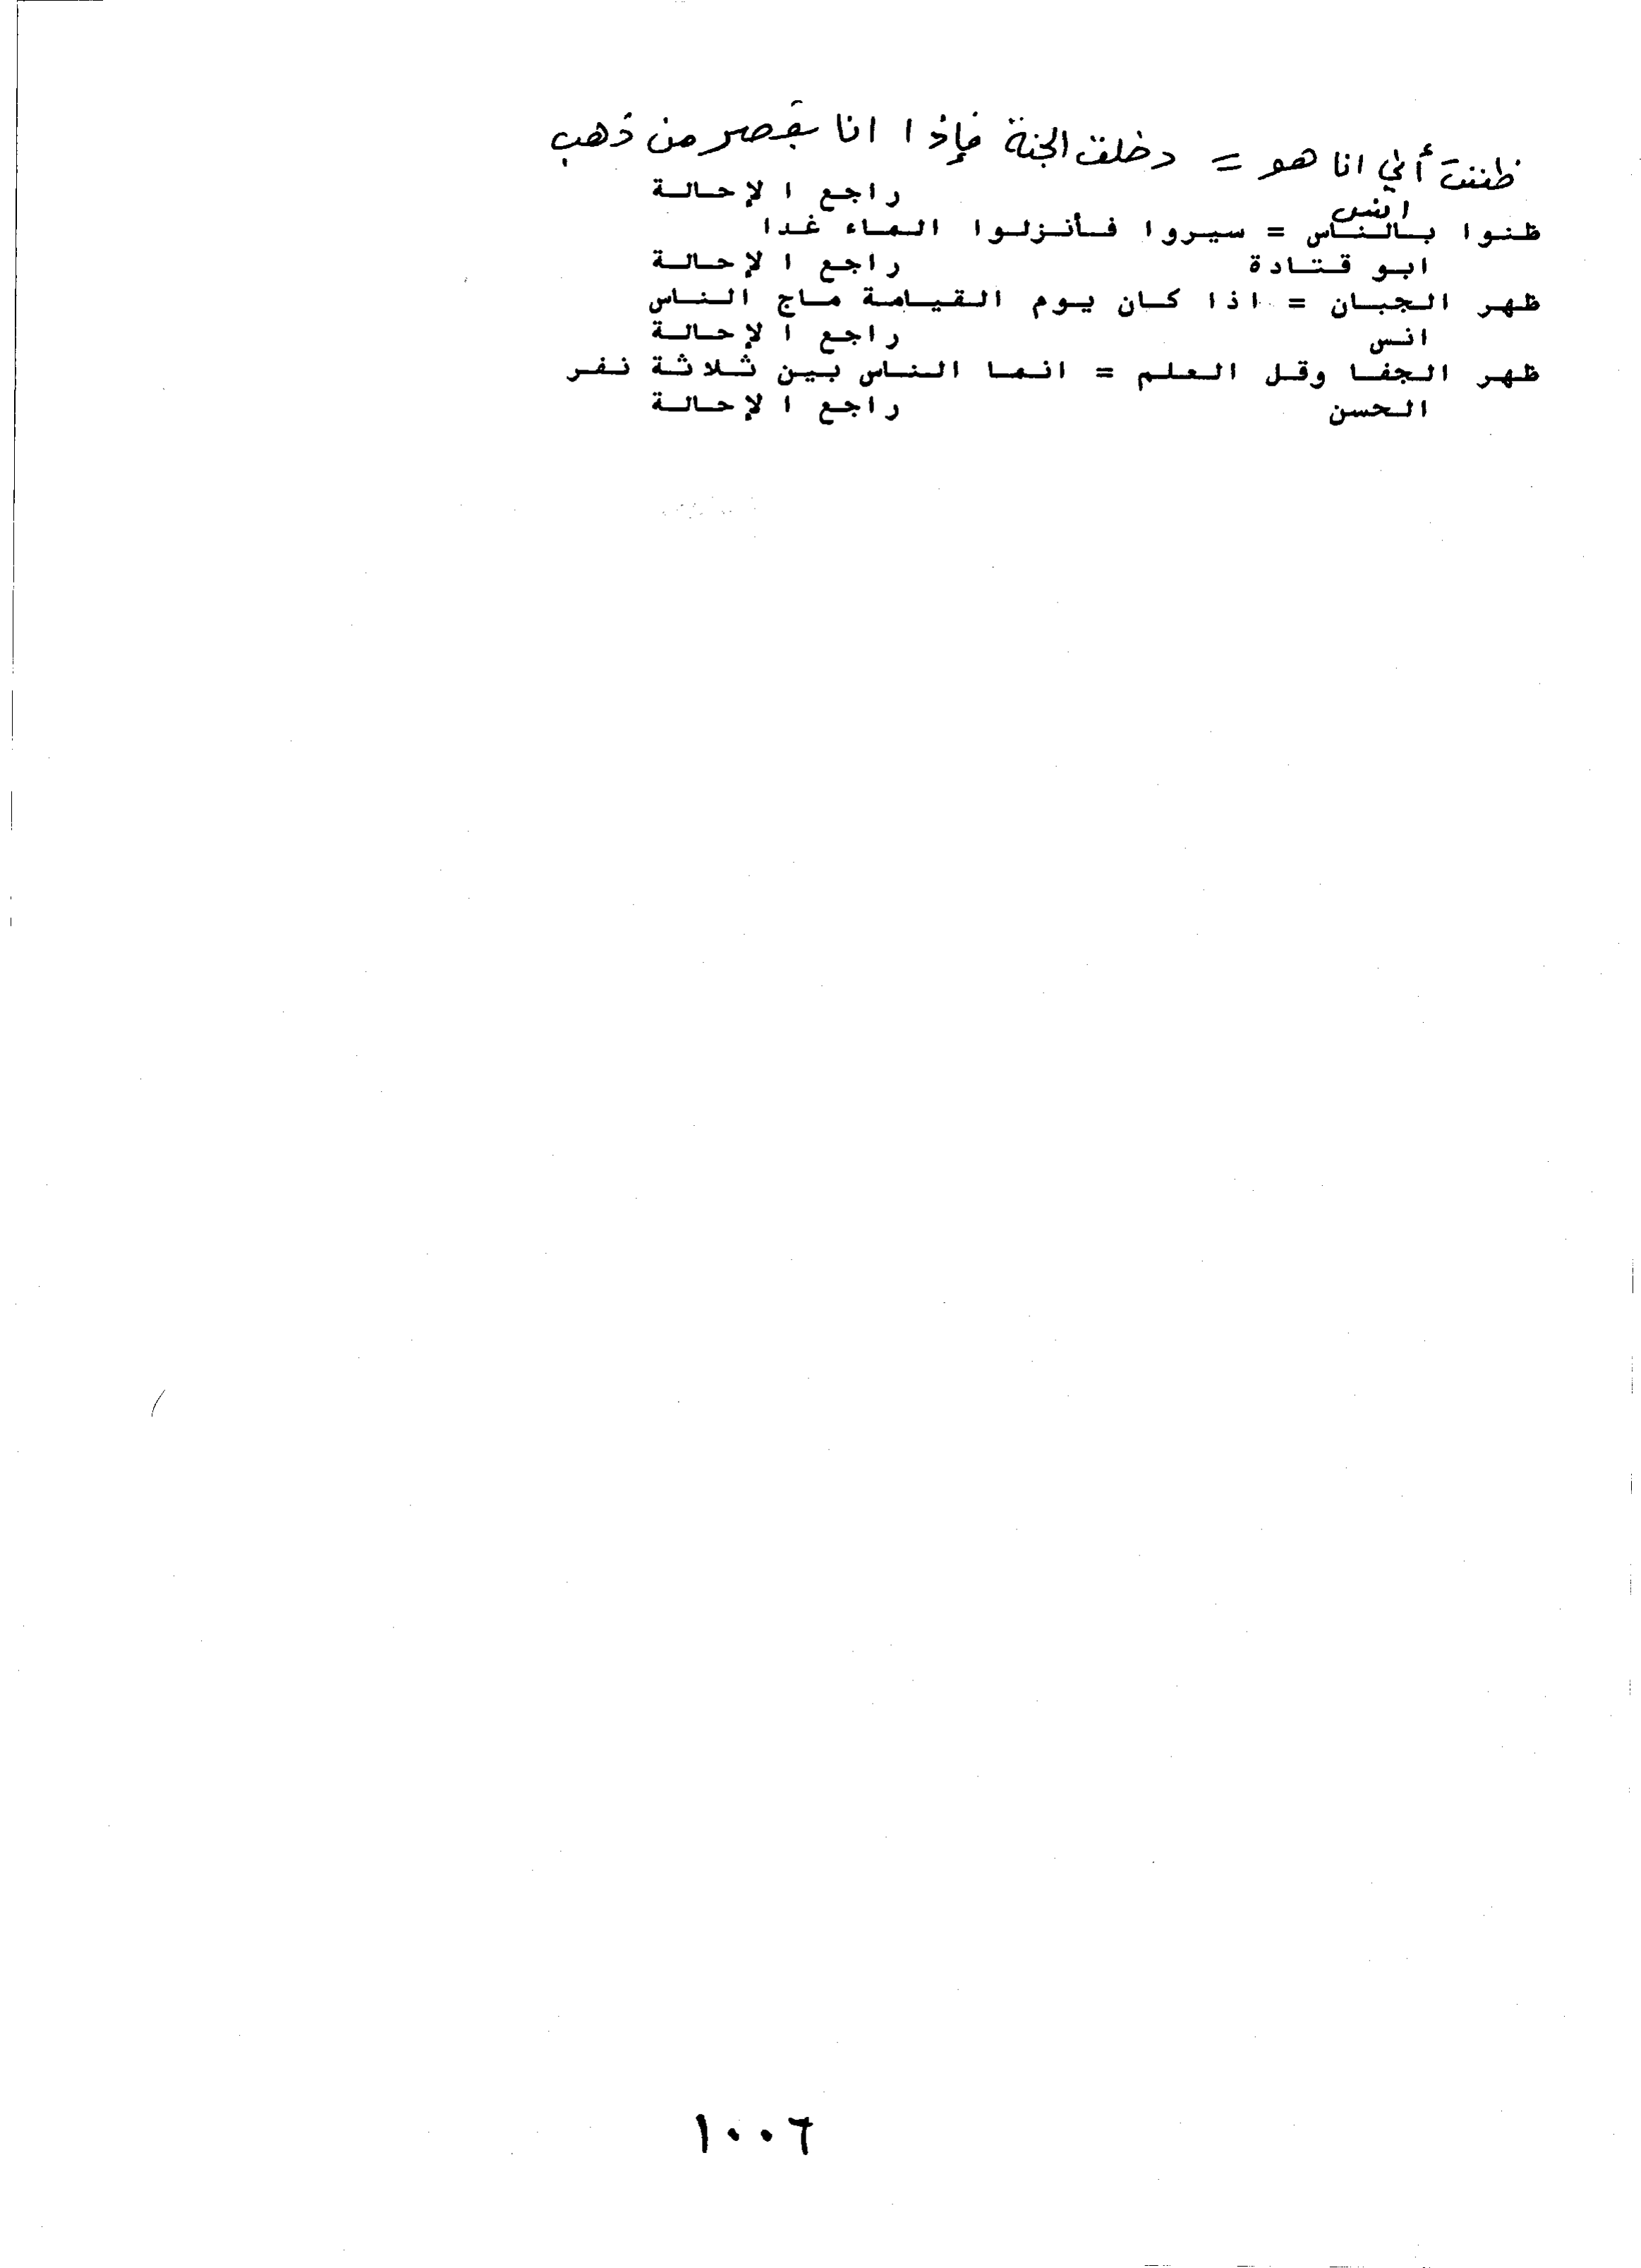 ظننت أني انا هو = دخلت الجنة فإذا انا بقصر من ذهب
انس راجع الإحالة
ظنوا بالناس = سيروا فأنزلوا الماء غدا
ابو قتادة راجع الإحالة
ظهر الجبان = اذا كان يوم القيامة ماج الناس
انس راجع الإحالة
ظهر الجفا وقل العلم = انما الناس بين ثلاثة نفر
الحسن راجع الإحالة
١٠٠٦